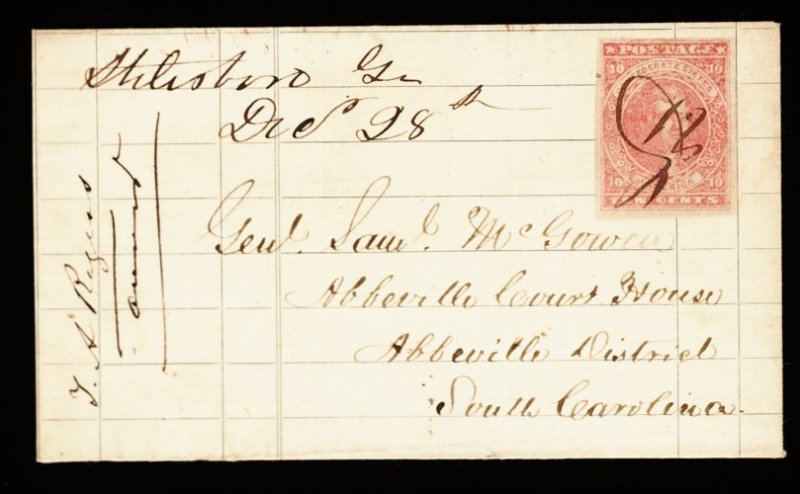 Stilesboro Ga
Dec 28th
POSTAGE
10 10
CONFEDERATE STATES
10 10
TEN CENTS
Genl. Saml. McGowen
Abbeville Court House
Abbeville District
South Carolina.
answered